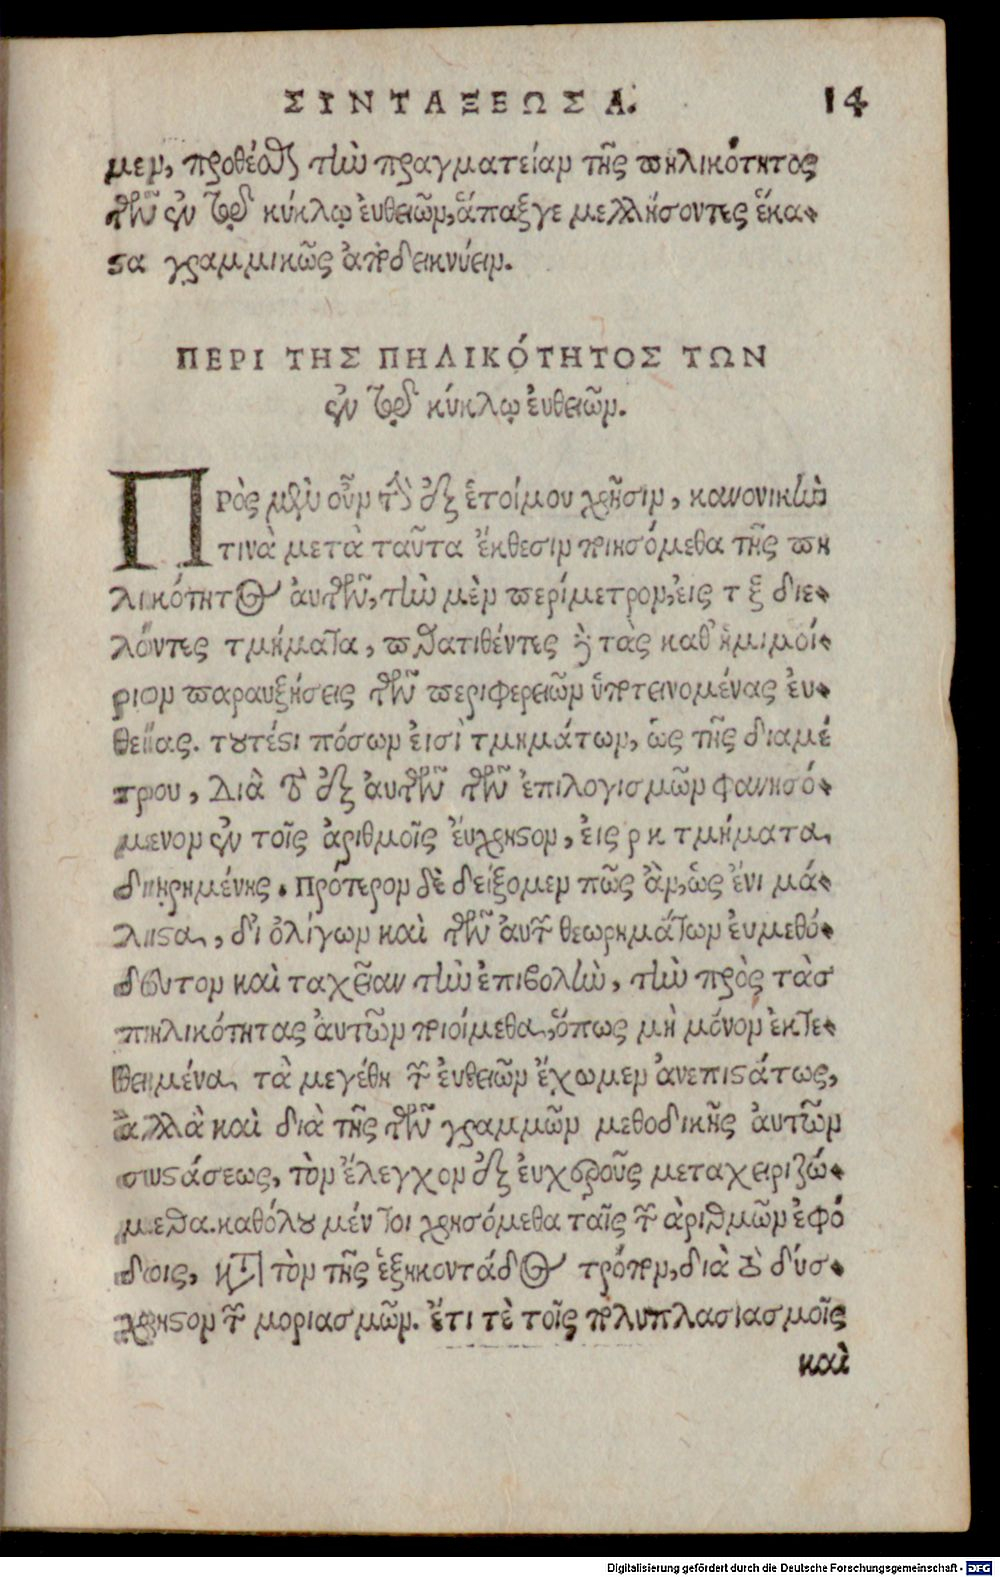 ΣΙΝΤΑΞΕΩΣ Α. 14
μεν, προθέσθαι τὴν πραγματείαν τῆς πηλικότητος
τῶν ἐν τῷ κύκλῳ ἐυθειῶν, ἅπαξγε μελλήσοντες ἕκα-
στα γραμμικῶς ἀποδεικνύειν.
ΠΕΡΙ ΤΗΣ ΠΗΛΙΚΌΤΗΤΟΣ ΤΩΝ
ἐν τῷ κύκλῳ ἐυθειῶν.
ΠΡὸς μὲν οὖν τὴν ἐξ ἑτοίμου χρῆσιν, κανονικὴν
τινὰ μετὰ ταῦτα ἔκθεσιν ποιησόμεθα τῆς πη
λικότητος ἀυτῶν, τὴν μὲν περίμετρον, εἰς τ ξ διε-
λόντες τμήματα, παρατιθέντες δὲ τὰς καθ' ἡμιμοί-
ριον παραυξήσεις τῶν περιφερειῶν ὑποτεινομένας ἐυ-
θείας. τουτέστι πόσων εἰσὶ τμημάτων, ὡς τῆς διαμέ
τρου, διὰ τὸ ἐξ ἀυτῶν τῶν ἐπιλογισμῶν φανησό-
μενον ἐν τοῖς ἀριθμοῖς ἔυχρηστον, εἰς ρ κ τμήματα
διῃρημένης. Πρότερον δὲ δείξομεν πῶς ἂν, ὡς ἔνι μά-
λιστα, δι ὀλίγων καὶ τῶν ἀυτῶν θεωρημάτων ἐυμεθό-
δευτον καὶ ταχεῖαν τὴν ἐπιβολὴν, τὴν πρὸς τὰσ
πηλικότητας ἀυτῶν ποιοίμεθα, ὅπως μὴ μόνον ἐκτε-
θειμένα τὰ μεγέθη τῶν ἐυθειῶν ἔχωμεν ἀνεπιστάτως,
ἀλλὰ καὶ διὰ τῆς τῶν γραμμῶν μεθοδικῆς ἀυτῶν
συστάσεως, τὸν ἔλεγχον ἐξ ἐυχεροῦς μεταχειριζώ-
μεθα. καθόλου μέν τοι χρησόμεθα ταῖς τῶν ἀριθμῶν ἐφό
δοις, κατὰ τὸν τῆς ἑξηκοντάδος τρόπον, διὰ τὸ δύσ-
χρηστον τῶν μοριασμῶν. ἔτι τὲ τοῖς πολυπλασιασμοῖς
καὶ
Digitalisierung gefördert durch die Deutsche Forschungsgemeinschaft - DFG